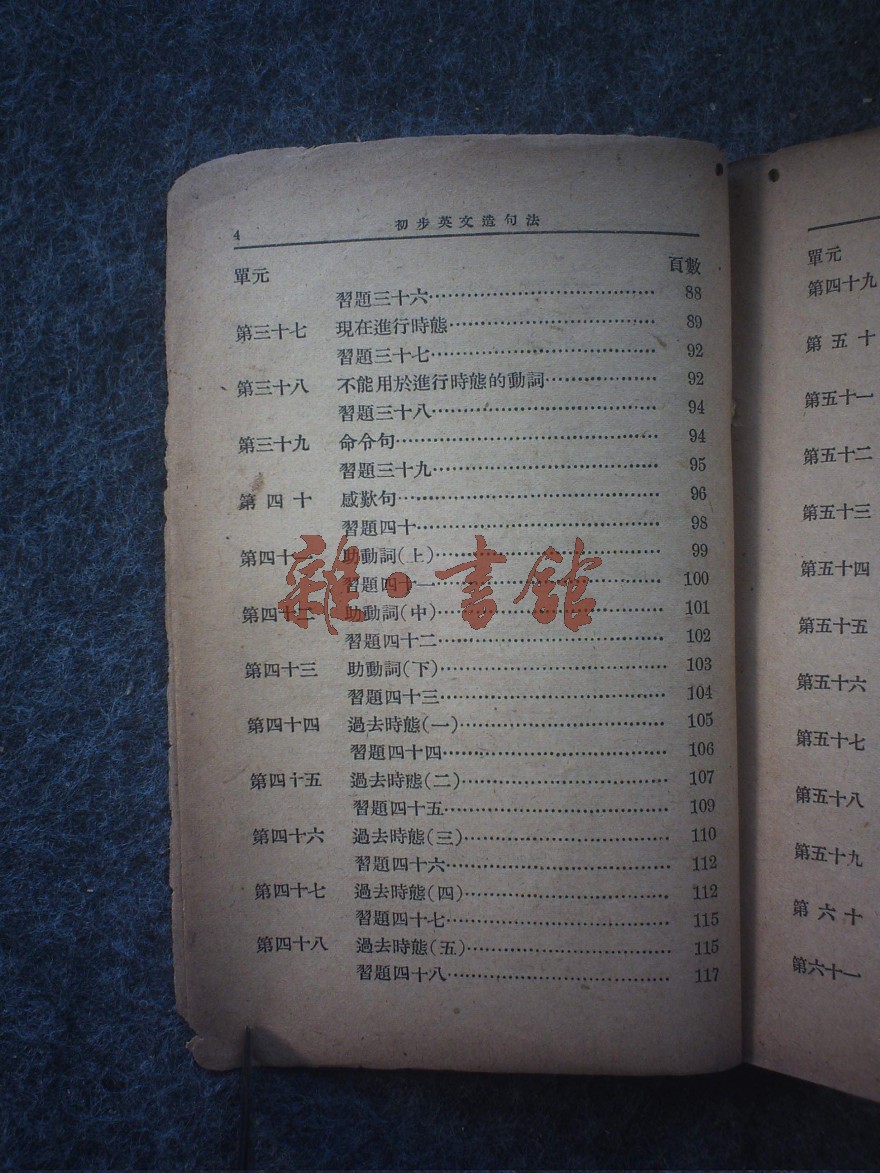 4 初步英文造句法
單元 頁數
習題三十六…………………………… 88
第三十七 現在進行時態…………………………… 89
習題三十七…………………………… 92
第三十八 不能用於進行時態的動詞……………… 92
習題三十八…………………………… 94
第三十九 命令句…………………………………… 94
習題三十九…………………………… 95
第四十 感歎句…………………………………… 96
習題四十……………………………… 98
第四十一 助動詞(上)…………………………… 99
習題四十一…………………………… 100
第四十二 助動詞(中)…………………………… 101
習題四十二…………………………… 102
第四十三 助動詞(下)…………………………… 103
習題四十三…………………………… 104
第四十四 過去時態(一)………………………… 105
習題四十四…………………………… 106
第四十五 過去時態(二)………………………… 107
習題四十五…………………………… 109
第四十六 過去時態(三)………………………… 110
習題四十六…………………………… 112
第四十七 過去時態(四)………………………… 112
習題四十七…………………………… 115
第四十八 過去時態(五)………………………… 115
習題四十八…………………………… 117
雜·書館
單元
第四十九
第五十
第五十一
第五十二
第五十三
第五十四
第五十五
第五十六
第五十七
第五十八
第五十九
第六十
第六十一